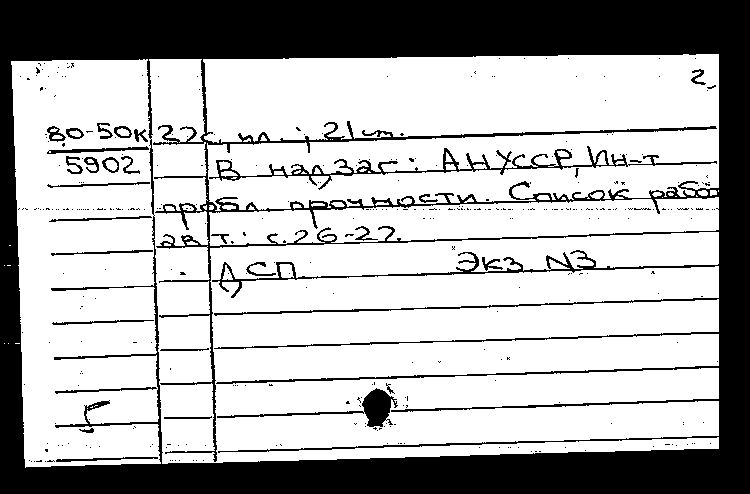 2.
80-50к 27с., ил. ; 21 см.
5902 В надзаг: АН УССР, Ин-т
пробл. прочности. Список работ
авт.: с. 26-27.
ДСП Экз N3
5